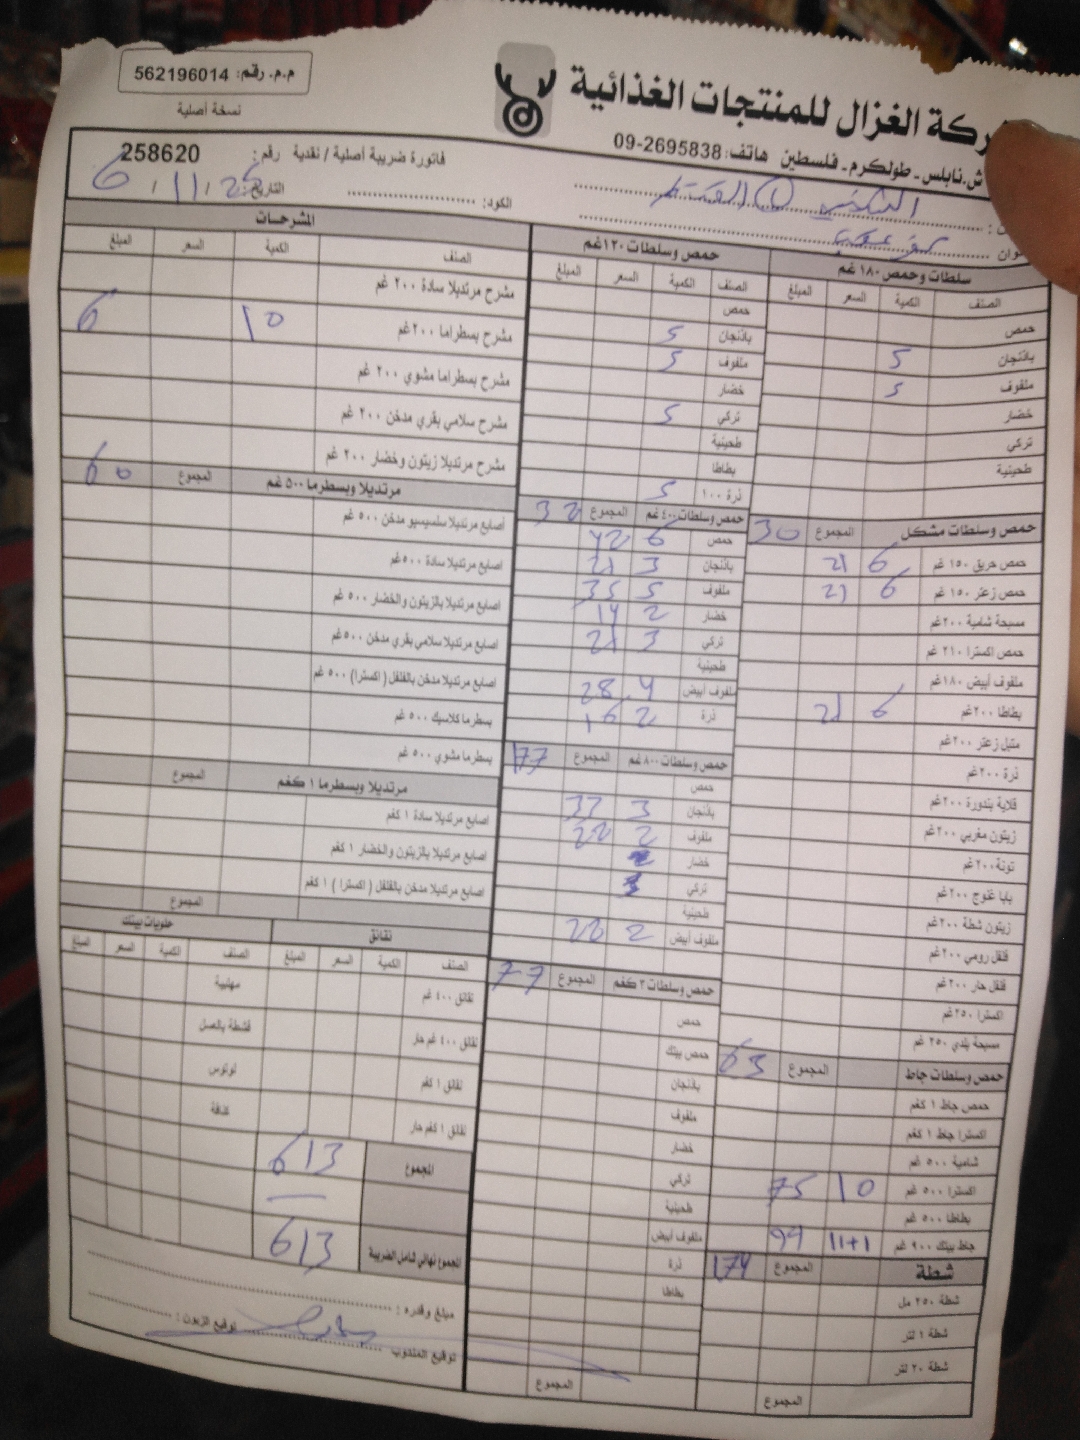 م.م. رقم: 562196014
نسخة أصلية
ركة الغزال للمنتجات الغذائية
ش.نابلس - طولكرم - فلسطين هاتف: 2695838-09
فاتورة ضريبة أصلية / نقدية رقم: 258620
التاريخ: 25 / 11 / 6
الكود:
وان
المشرحات
الصنف الكمية السعر المبلغ
مشرح مرتديلا سادة ٢٠٠ غم
مشرح بسطراما ٢٠٠غم 10 6
مشرح بسطراما مشوي ٢٠٠ غم
مشرح سلامي بقري مدخن ٢٠٠ غم
مشرح مرتديلا زيتون وخضار ٢٠٠ غم
مرتديلا وبسطرما ٥٠٠ غم المجموع 60
اصابع مرتديلا سلسيسيو مدخن ٥٠٠ غم
اصابع مرتديلا سادة ٥٠٠غم
اصابع مرتديلا بالزيتون والخضار ٥٠٠ غم
اصابع مرتديلا سلامي بقري مدخن ٥٠٠غم
اصابع مرتديلا مدخن بالفلفل ( اكسترا ) ٥٠٠ غم
بسطرما كلاسيك ٥٠٠ غم
بسطرما مشوي ٥٠٠ غم
مرتديلا وبسطرما ١ كغم المجموع
اصابع مرتديلا سادة ١ كغم
اصابع مرتديلا بالزيتون والخضار ١ كغم
اصابع مرتديلا مدخن بالفلفل ( اكسترا ) ١ كغم
المجموع
نقانق
الصنف الكمية السعر المبلغ
نقانق ٤٠٠ غم
نقانق ٤٠٠ غم حار
نقانق ١ كغم
نقانق ١ كغم حار
حلويات بيتك
الصنف الكمية السعر المبلغ
مهلبية
قشطة بالعسل
لوتوس
كنافة
المجموع 613
المجموع نهائي شامل الضريبة 613
مبلغ وقدره :
توقيع الزبون :
توقيع المندوب
حمص وسلطات ١٢٠غم
الصنف الكمية السعر المبلغ
حمص
باذنجان 5
ملفوف 5
خضار
تركي 5
طحينية
بطاطا
ذرة ١٠٠ 5
حمص وسلطات ٤٠٠غم المجموع 32
حمص 6 42
باذنجان 3 21
ملفوف 5 35
خضار 2 14
تركي 3 21
طحينية
ملفوف أبيض 4 28
ذرة 2 16
حمص وسلطات ٨٠٠غم المجموع 177
حمص
باذنجان 3 33
ملفوف 2 22
خضار
تركي
طحينية
ملفوف أبيض 2 22
حمص وسلطات ٣ كغم المجموع 77
حمص
حمص بيتك
باذنجان
ملفوف
خضار
تركي
طحينية
ملفوف أبيض
ذرة
بطاطا
المجموع
سلطات وحمص ١٨٠ غم
الصنف الكمية السعر المبلغ
حمص
باذنجان 5
ملفوف 5
خضار
تركي
طحينية
حمص وسلطات مشكل المجموع 30
حمص حريق ١٥٠ غم 6 21
حمص زعتر ١٥٠ غم 6 21
مسبحة شامية ٢٠٠غم
حمص اكسترا ٢١٠ غم
ملفوف أبيض ١٨٠غم
بطاطا ٢٠٠غم 6 21
متبل زعتر ٢٠٠غم
ذرة ٢٠٠غم
قلاية بندورة ٢٠٠غم
زيتون مغربي ٢٠٠غم
تونة ٢٠٠غم
بابا غنوج ٢٠٠غم
زيتون شطة ٢٠٠غم
فلفل رومي ٢٠٠غم
فلفل حار ٢٠٠غم
اكسترا ٢٥٠غم
مسبحة بلدي ٢٥٠ غم
حمص وسلطات جاط المجموع 63
حمص جاط ١ كغم
اكسترا جاط ١ كغم
شامية ٥٠٠ غم
اكسترا ٥٠٠ غم 10 75
بطاطا ٥٠٠ غم
جاط بيتك ٩٠٠ غم 11+1 99
شطة المجموع 174
شطة ٢٥٠ مل
شطة ١ لتر
شطة ٢٠ لتر
المجموع